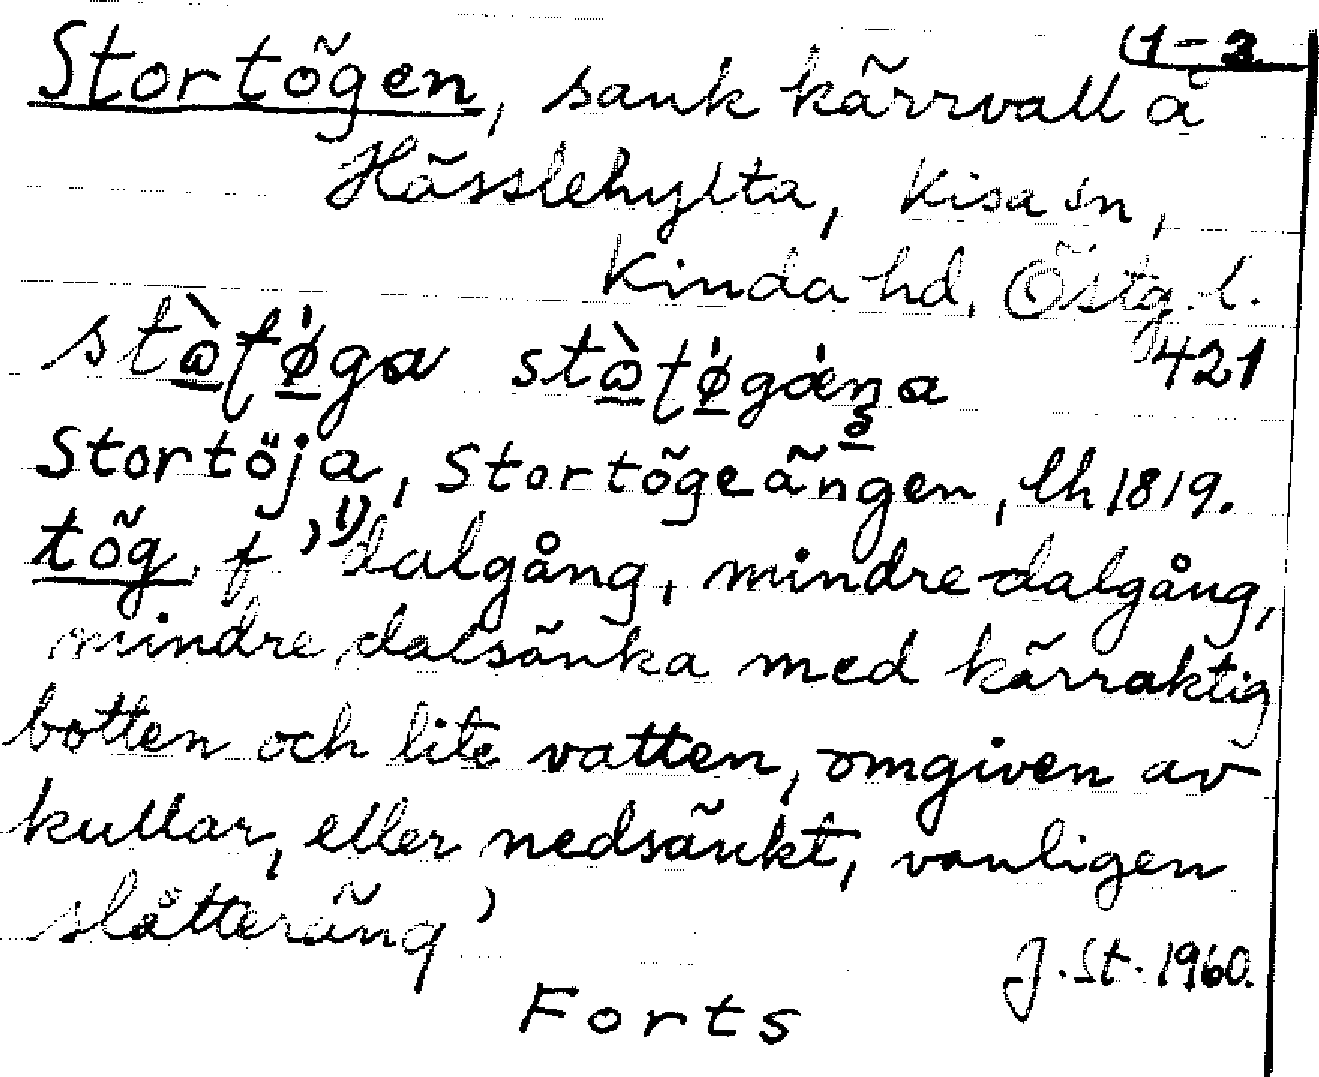 (1-2
Stortögen, sank kärrvall å
Hässlehylta, Kisa sn,
Kinda hd. Östg. l.
421
Stortöja, Stortögeängen, lh 1819.
tög f ’¹⁾dalgång, mindre dalgång,
mindre dalsänka med kärraktig
botten och lite vatten, omgiven av
kullar, eller nedsänkt, vanligen
slåtteräng’
J. St. 1960.
Forts